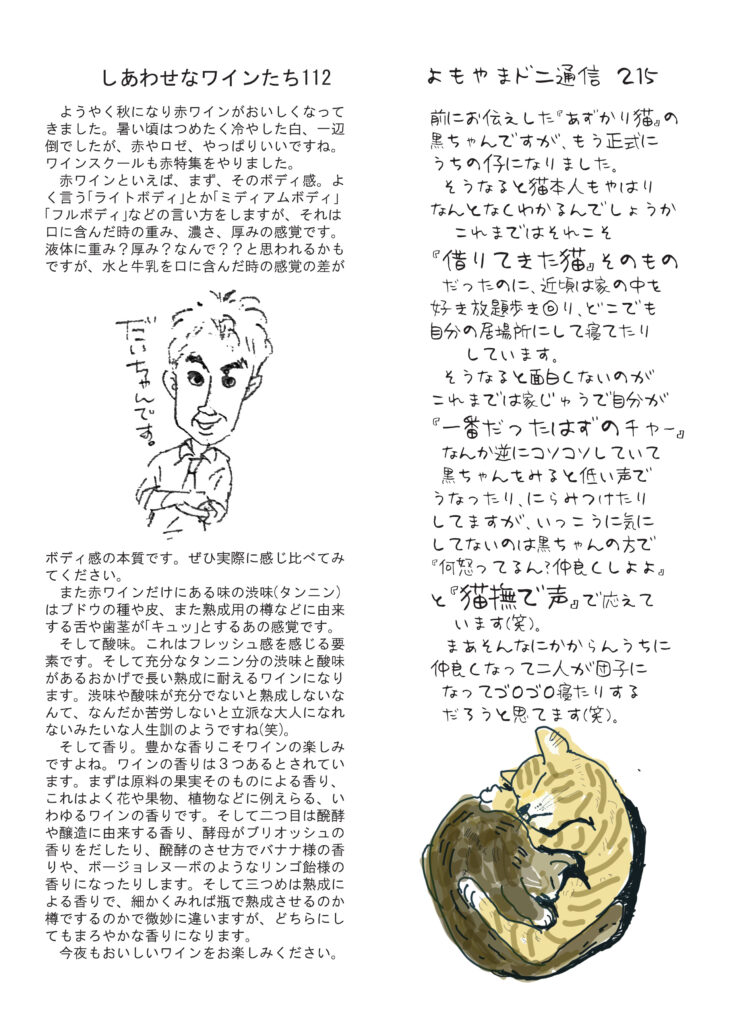 しあわせなワインたち112
　ようやく秋になり赤ワインがおいしくなって
きました。暑い頃はつめたく冷やした白、一辺
倒でしたが、赤やロゼ、やっぱりいいですね。
ワインスクールも赤特集をやりました。
　赤ワインといえば、まず、そのボディ感。よ
く言う｢ライトボディ｣とか｢ミディアムボディ｣
｢フルボディ｣などの言い方をしますが、それは
口に含んだ時の重み、濃さ、厚みの感覚です。
液体に重み？厚み？なんで？？と思われるかも
ですが、水と牛乳を口に含んだ時の感覚の差が
だいちゃんです。
ボディ感の本質です。ぜひ実際に感じ比べてみ
てください。
　また赤ワインだけにある味の渋味(タンニン)
はブドウの種や皮、また熟成用の樽などに由来
する舌や歯茎が｢キュッ｣とするあの感覚です。
　そして酸味。これはフレッシュ感を感じる要
素です。そして充分なタンニン分の渋味と酸味
があるおかげで長い熟成に耐えるワインになり
ます。渋味や酸味が充分でないと熟成しないな
んて、なんだか苦労しないと立派な大人になれ
ないみたいな人生訓のようですね(笑)。
　そして香り。豊かな香りこそワインの楽しみ
ですよね。ワインの香りは３つあるとされてい
ます。まずは原料の果実そのものによる香り、
これはよく花や果物、植物などに例えらる、い
わゆるワインの香りです。そして二つ目は醗酵
や醸造に由来する香り、酵母がブリオッシュの
香りをだしたり、醗酵のさせ方でバナナ様の香
りや、ボージョレヌーボのようなリンゴ飴様の
香りになったりします。そして三つめは熟成に
よる香りで、細かくみれば瓶で熟成させるのか
樽でするのかで微妙に違いますが、どちらにし
てもまろやかな香りになります。
　今夜もおいしいワインをお楽しみください。
よもやまドニ通信 215
前にお伝えした『あずかり猫』の
黒ちゃんですが、もう正式に
うちの仔になりました。
そうなると猫本人もやはり
なんとなくわかるんでしょうか
これまではそれこそ
『借りてきた猫』そのもの
だったのに、近頃は家の中を
好き放題歩き回り、どこでも
自分の居場所にして寝てたり
しています。
そうなると面白くないのが
これまでは家じゅうで自分が
『一番だったはずのチャー』
なんか逆にコソコソしていて
黒ちゃんをみると低い声で
うなったり、にらみつけたり
してますが、いっこうに気に
してないのは黒ちゃんの方で
『何怒ってるん?仲良くしよよ』
と『猫撫で声』で応えて
います(笑)。
まあそんなにかからんうちに
仲良くなって二人が団子に
なってゴロゴロ寝たりする
だろうと思てます(笑)。